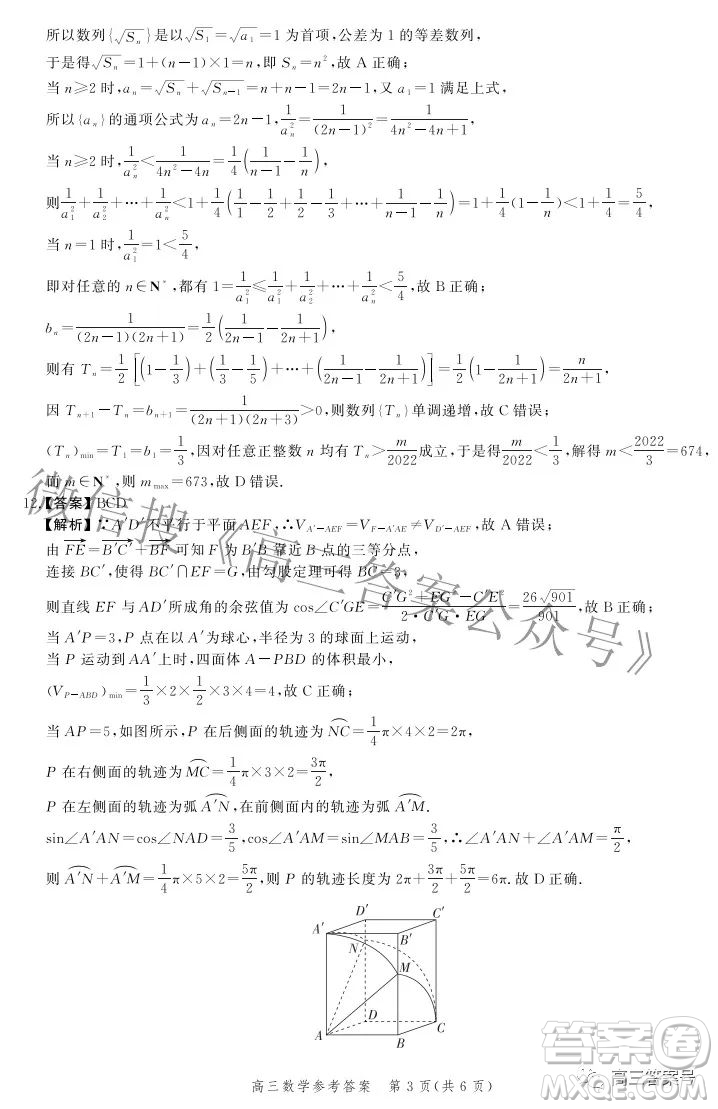 所以数列{√Sₙ}是以√S₁=√a₁=1为首项,公差为1的等差数列,
于是得√Sₙ=1+(n-1)×1=n,即 Sₙ=n²,故 A 正确;
当 n≥2 时,aₙ=√Sₙ+√Sₙ₋₁=n+n-1=2n-1,又 a₁=1 满足上式,
所以{aₙ}的通项公式为 aₙ=2n-1,1/aₙ²=1/(2n-1)²=1/(4n²-4n+1),
当 n≥2 时,1/aₙ²<1/(4n²-4n)=1/4(1/(n-1)-1/n),
则1/a₁²+1/a₂²+…+1/aₙ²<1+1/4(1/1-1/2+1/2-1/3+…+1/(n-1)-1/n)=1+1/4(1-1/n)<1+1/4=5/4,
当 n=1 时,1/a₁²=1<5/4,
即对任意的 n∈N*,都有 1=1/a₁²≤1/a₁²+1/a₂²+…+1/aₙ²<5/4,故 B 正确;
bₙ=1/((2n-1)(2n+1))=1/2(1/(2n-1)-1/(2n+1)),
则有 Tₙ=1/2[(1-1/3)+(1/3-1/5)+…+(1/(2n-1)-1/(2n+1))]=1/2(1-1/(2n+1))=n/(2n+1),
因 Tₙ₊₁-Tₙ=bₙ₊₁=1/((2n+1)(2n+3))>0,则数列{Tₙ}单调递增,故 C 错误;
(Tₙ)min=T₁=b₁=1/3,因对任意正整数 n 均有 Tₙ>m/2022成立,于是得m/2022<1/3,解得 m<2022/3=674,
而 m∈N*,则 mmax=673,故 D 错误.
12.【答案】BCD
【解析】∵A′D′不平行于平面 AEF,∴V_{A′-AEF}=V_{F-A′AE}≠V_{D′-AEF},故 A 错误;
由 FE=B′C′+BF 可知 F 为 B′B 靠近 B 点的三等分点,
连接 BC′,使得 BC′∩EF=G,由勾股定理可得 BC′=
则直线 EF 与 AD′所成角的余弦值为 cos∠C′GE=(C′G²+EG²-C′E²)/(2·C′G·EG)=26√901/901,故 B 正确;
当 A′P=3,P 点在以 A′为球心,半径为 3 的球面上运动,
当 P 运动到 AA′上时,四面体 A-PBD 的体积最小,
(V_{P-ABD})min=1/3×2×1/2×3×4=4,故 C 正确;
当 AP=5,如图所示,P 在后侧面的轨迹为 NC=1/4π×4×2=2π,
P 在右侧面的轨迹为 MC=1/4π×3×2=3π/2,
P 在左侧面的轨迹为弧 A′N,在前侧面内的轨迹为弧 A′M.
sin∠A′AN=cos∠NAD=3/5,cos∠A′AM=sin∠MAB=3/5,∴∠A′AN+∠A′AM=π/2,
则 A′N+A′M=1/4π×5×2=5π/2,则 P 的轨迹长度为 2π+3π/2+5π/2=6π.故 D 正确.
D′ C′
A′ B′
N
M
D C
A B
高三数学参考答案 第 3 页(共 6 页)
微信搜《高三答案公众号》
答案圈
高三答案号
MXQE.COM